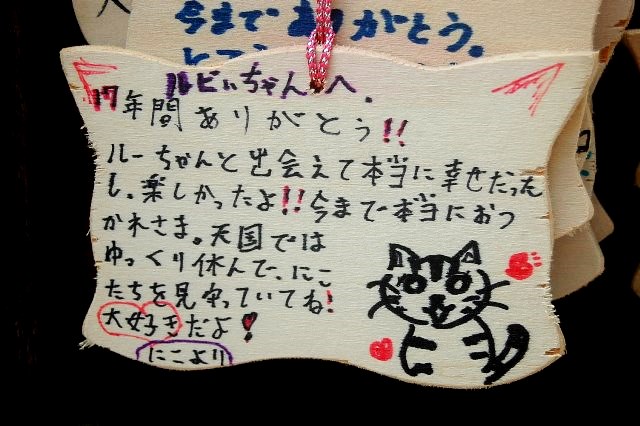 今までありがとう。
ルビぃちゃんへ.
17年間ありがとう!!
ルーちゃんと出会えて本当に幸せだった
し、楽しかったよ!!今まで本当におつ
かれさま。天国では
ゆっくり休んで、にこ
たちを見守っていてね!
大好きだよ!
にこより